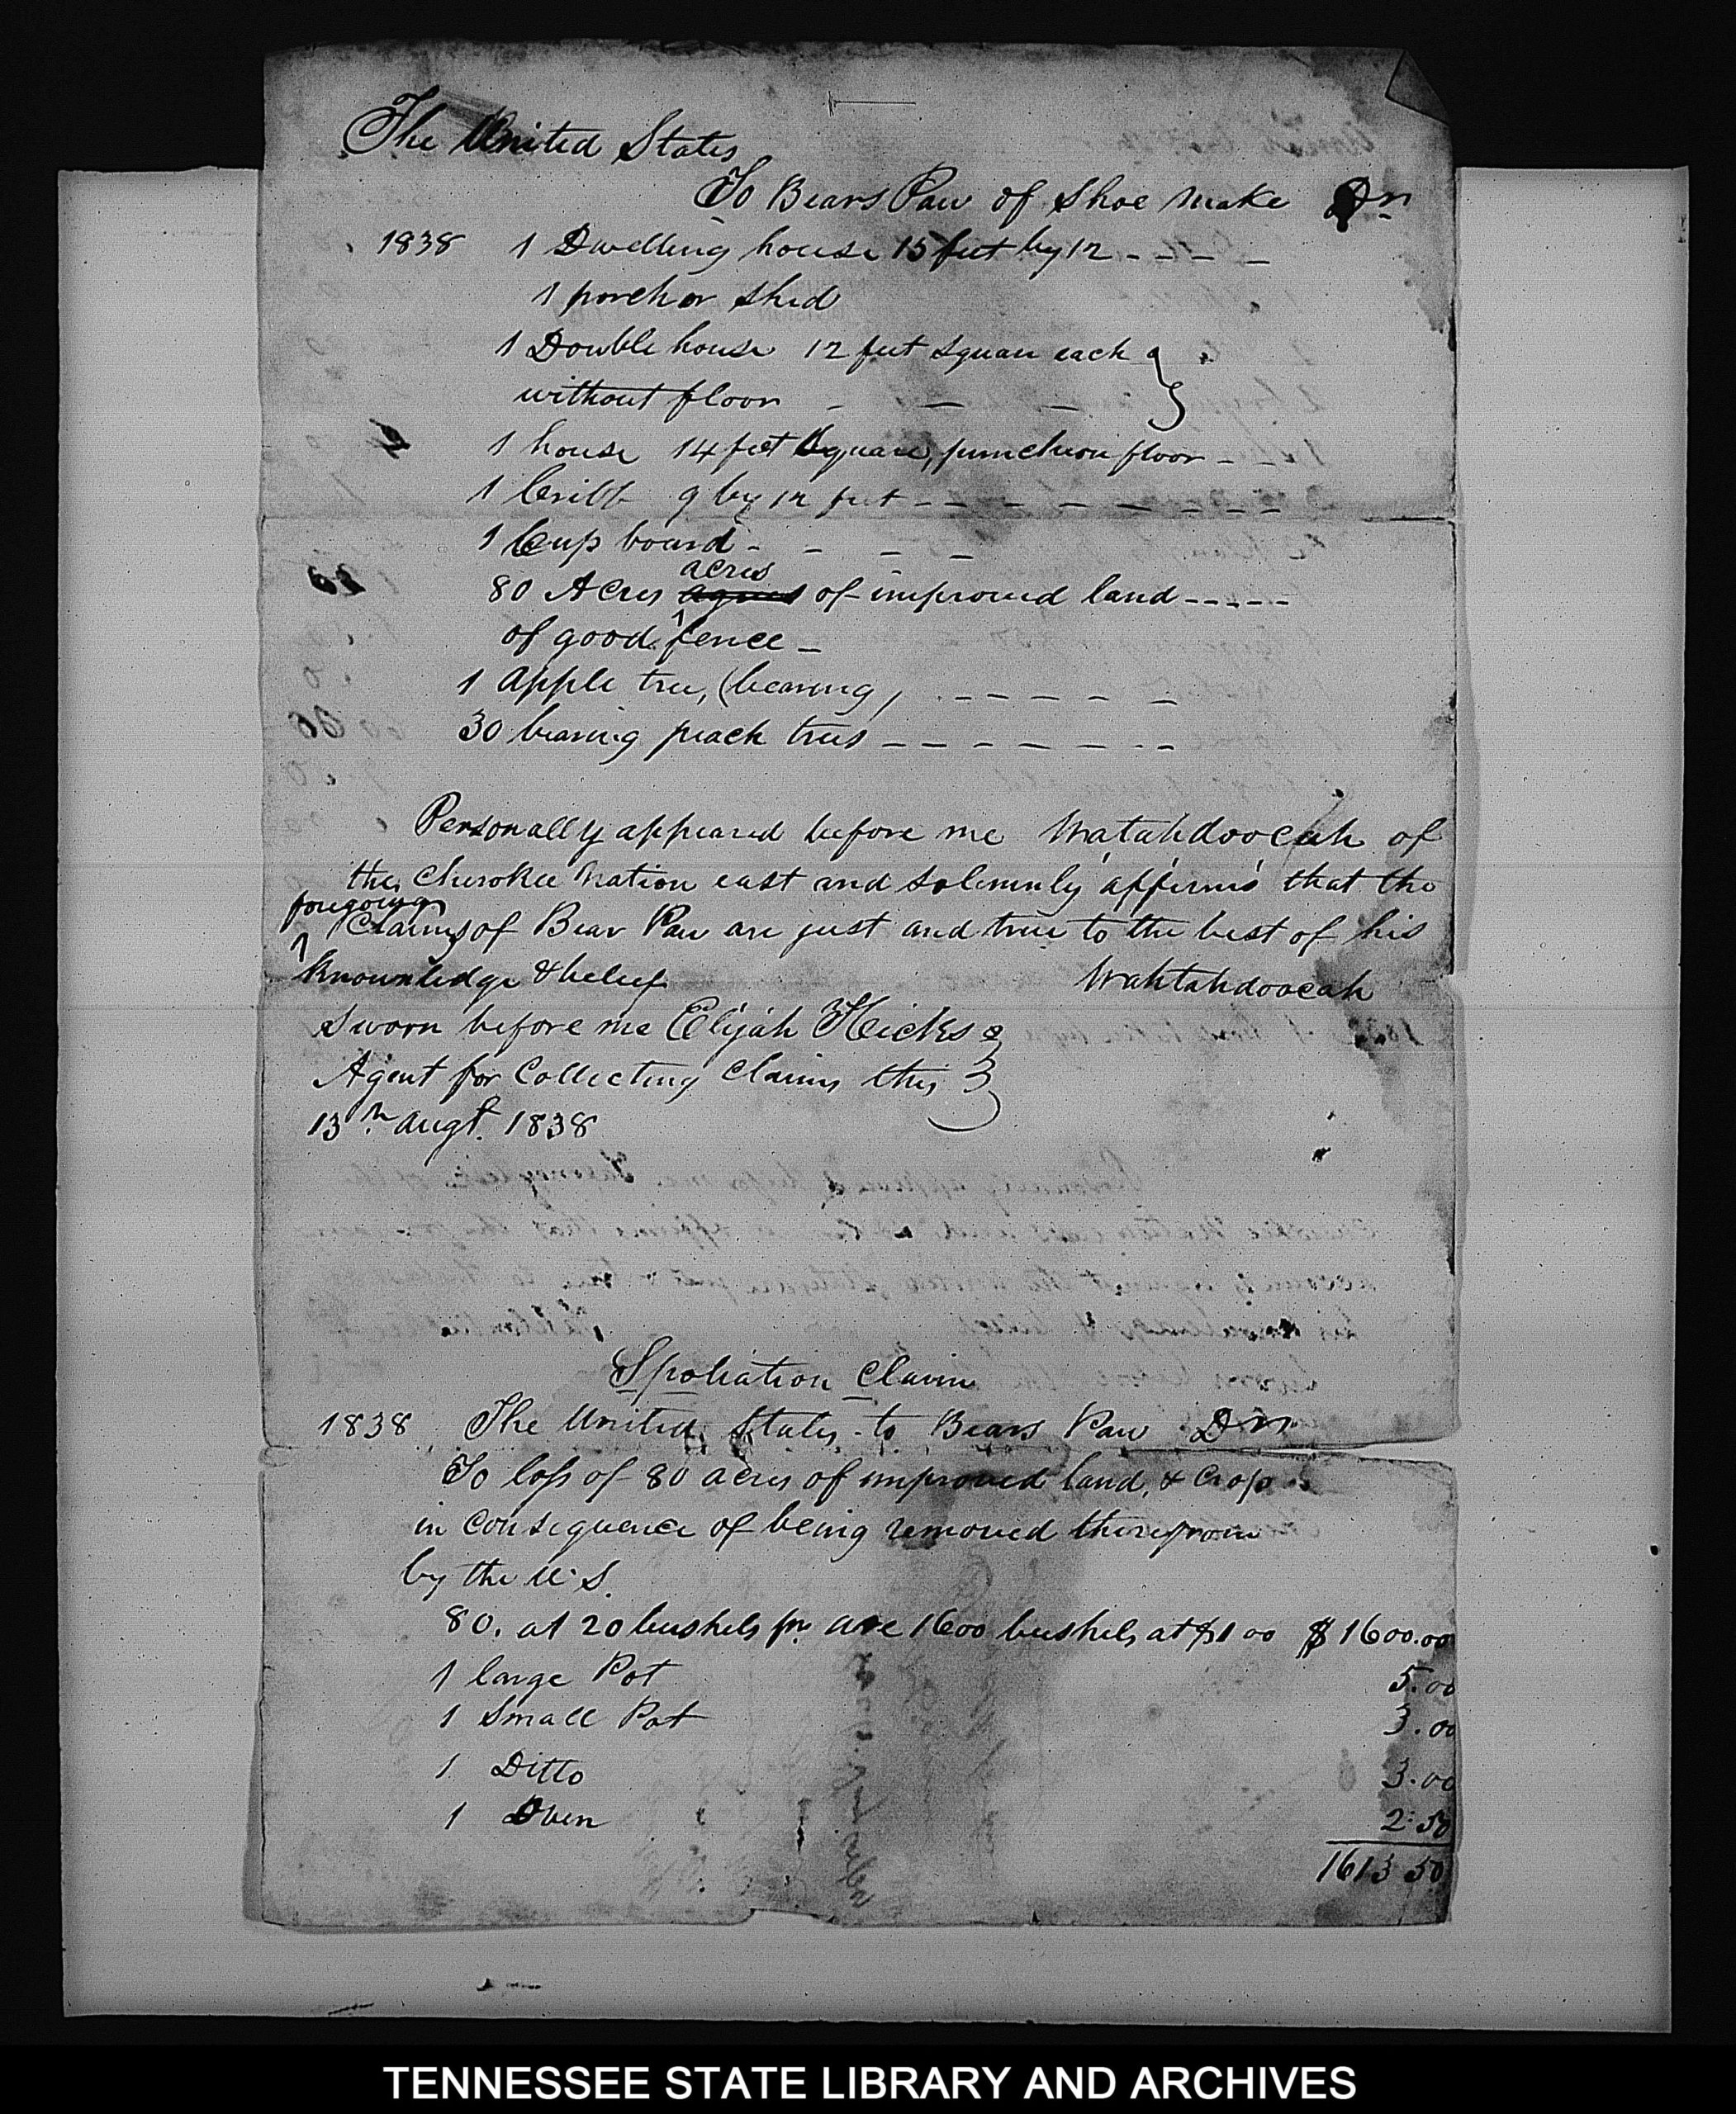 The United States
To Bears Paw of Shoe Make Dr
1838 1 Dwelling house 15 feet by 12 - - - -
1 porch or shed
1 Double house 12 feet square each
without floor - - -
1 house 14 feet Square, puncheon floor - -
1 Cribb 9 by 12 feet - - - - - - - -
1 Cup board - - - -
acres
80 Acres of improved land - - - - -
of good fence -
1 apple tree, (bearing) - - - - -
30 bearing peach trees - - - - - - -
Personally appeared before me Watahdoocah of
the Cherokee Nation east and solemnly affirms that the
foregoing
Claims of Bear Paw are just and true to the best of his
Knowledge & belief Wahtahdoocah
Sworn before me Elijah Hicks
Agent for Collecting Claims this
13th augt. 1838
Spoliation Claim
1838 The United States to Bears Paw Dr
To loss of 80 acres of improved land, & Crop
in Consequence of being removed therefrom
by the U.S.
80. at 20 bushels pr acre 1600 bushels at $1 00 $1600.00
1 large Pot 5.00
1 Small Pot 3.00
1 Ditto 3.00
1 Oven 2.50
1613 50
TENNESSEE STATE LIBRARY AND ARCHIVES